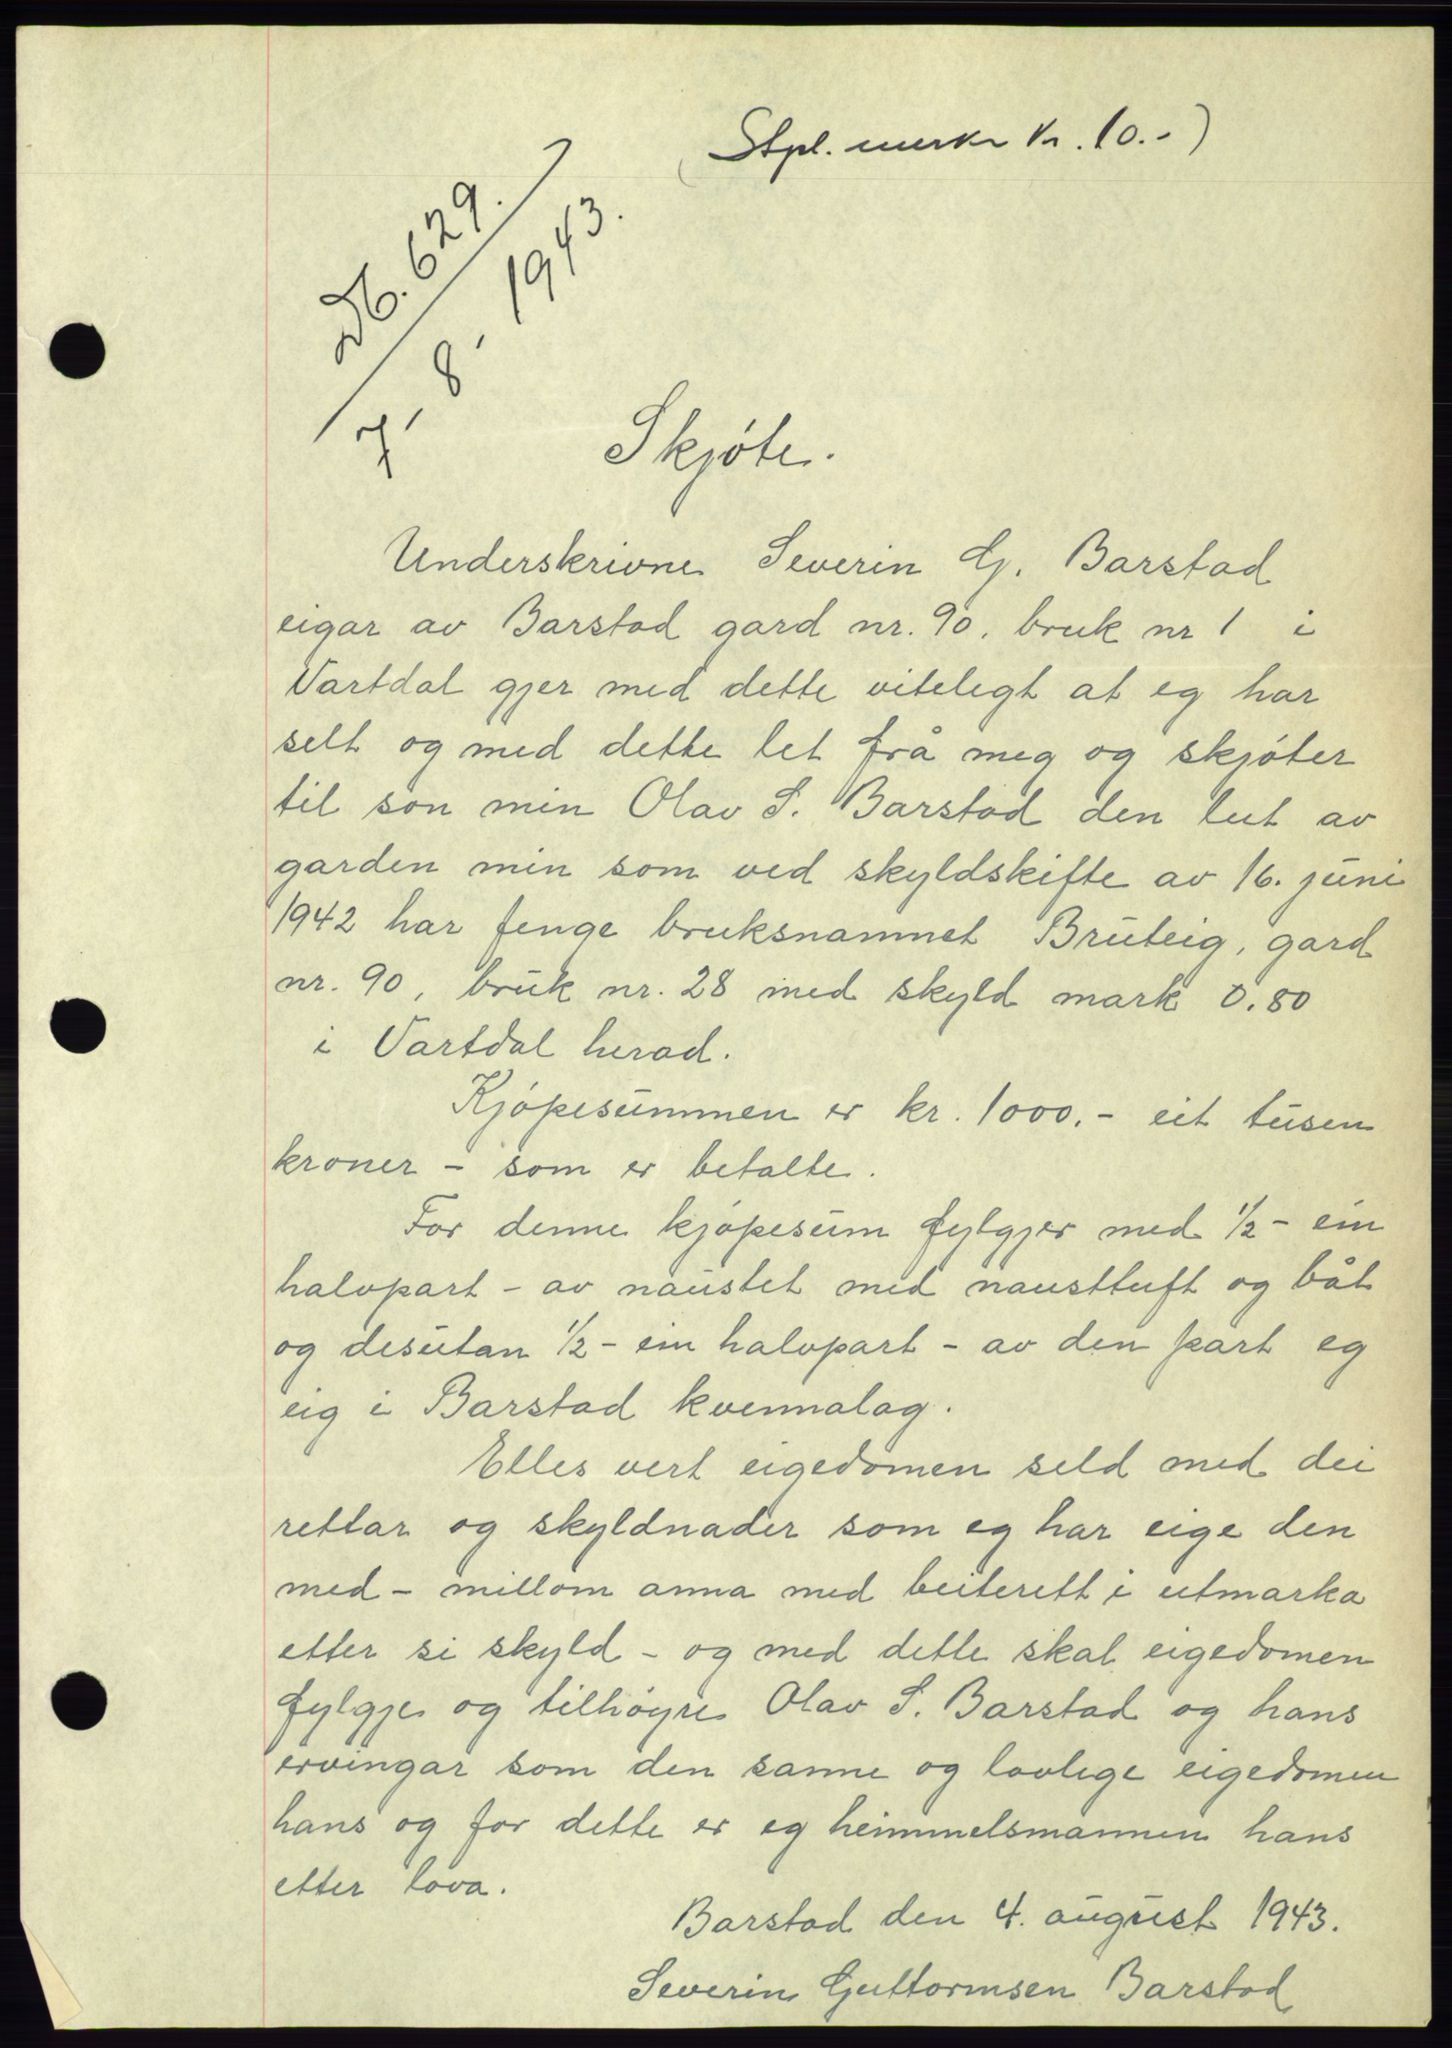 (Stpl. merke kr. 10.-)
Db. 629.
7, 8, 1943.
Skjóte.
Underskrivne Severin G. Barstad
eigar av Barstad gard nr. 90, bruk nr 1 i
Vartdal gjer med dette vitelegt at eg har
selt og med dette let frå meg og skjóter
til son min Olav S. Barstad den lut av
garden min som ved skyldskifte av 16. juni
1942 har fenge bruksnamnet Bruteig, gard
nr. 90, bruk nr. 28 med skyld mark 0.80
i Vartdal herad.
Kjópesummen er kr. 1000.- eit tusen
kroner - som er betalte.
For denne kjópesum fylgjer med 1/2 - ein
halvpart - av naustet med nausttuft og båt
og desutan 1/2 - ein halvpart - av den part eg
eig i Barstad kvennalag.
Elles vert eigedomen seld med dei
rettar og skyldnader som eg har eige den
med - millom anna med beiterett i utmarka
etter si skyld - og med dette skal eigedomen
fylgje og tilhóyre Olav S. Barstad og hans
ervingar som den sanne og lovlege eigedomen
hans og for dette er eg heimmelsmannen hans
etter lova.
Barstad den 4. august 1943.
Severin Guttormsen Barstad